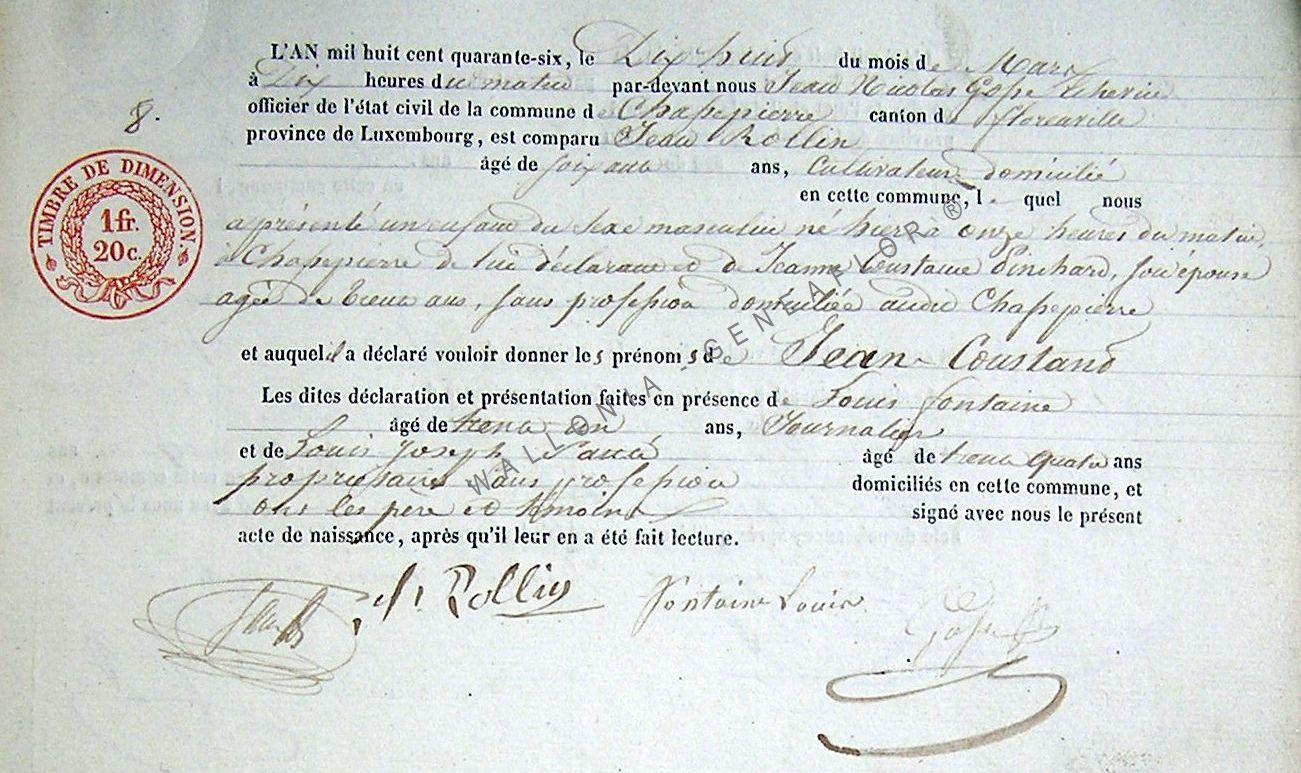 L'AN mil huit cent quarante-six, le Dix huit du mois de Mars
à Dix heures du matin par-devant nous Jean Nicolas Gosse
officier de l'état civil de la commune de Chassepierre canton de florenville
province de Luxembourg, est comparu Jean Rollin
8.
âgé de soixante ans, Cultivateur domicilié
en cette commune, le quel nous
a présenté un enfant du sexe masculin né hier à onze heures du matin,
à Chassepierre de lui déclarant et de Jeanne Constance Pinchard, son épouse
agée de trente ans, sans profession domiciliée audit Chassepierre
et auquel il a déclaré vouloir donner les prénoms de Jean Constant
Les dites déclaration et présentation faites en présence de Louis fontaine
âgé de trente un ans, Journalier
et de Louis Joseph âgé de trente quatre ans
propriétaire sans profession domiciliés en cette commune, et
ont les père et témoins signé avec nous le présent
acte de naissance, après qu'il leur en a été fait lecture.
J. Rollin fontaine Louis
TIMBRE DE DIMENSION.
1 fr.
20 c.
WALLONIA GENEALOR ®